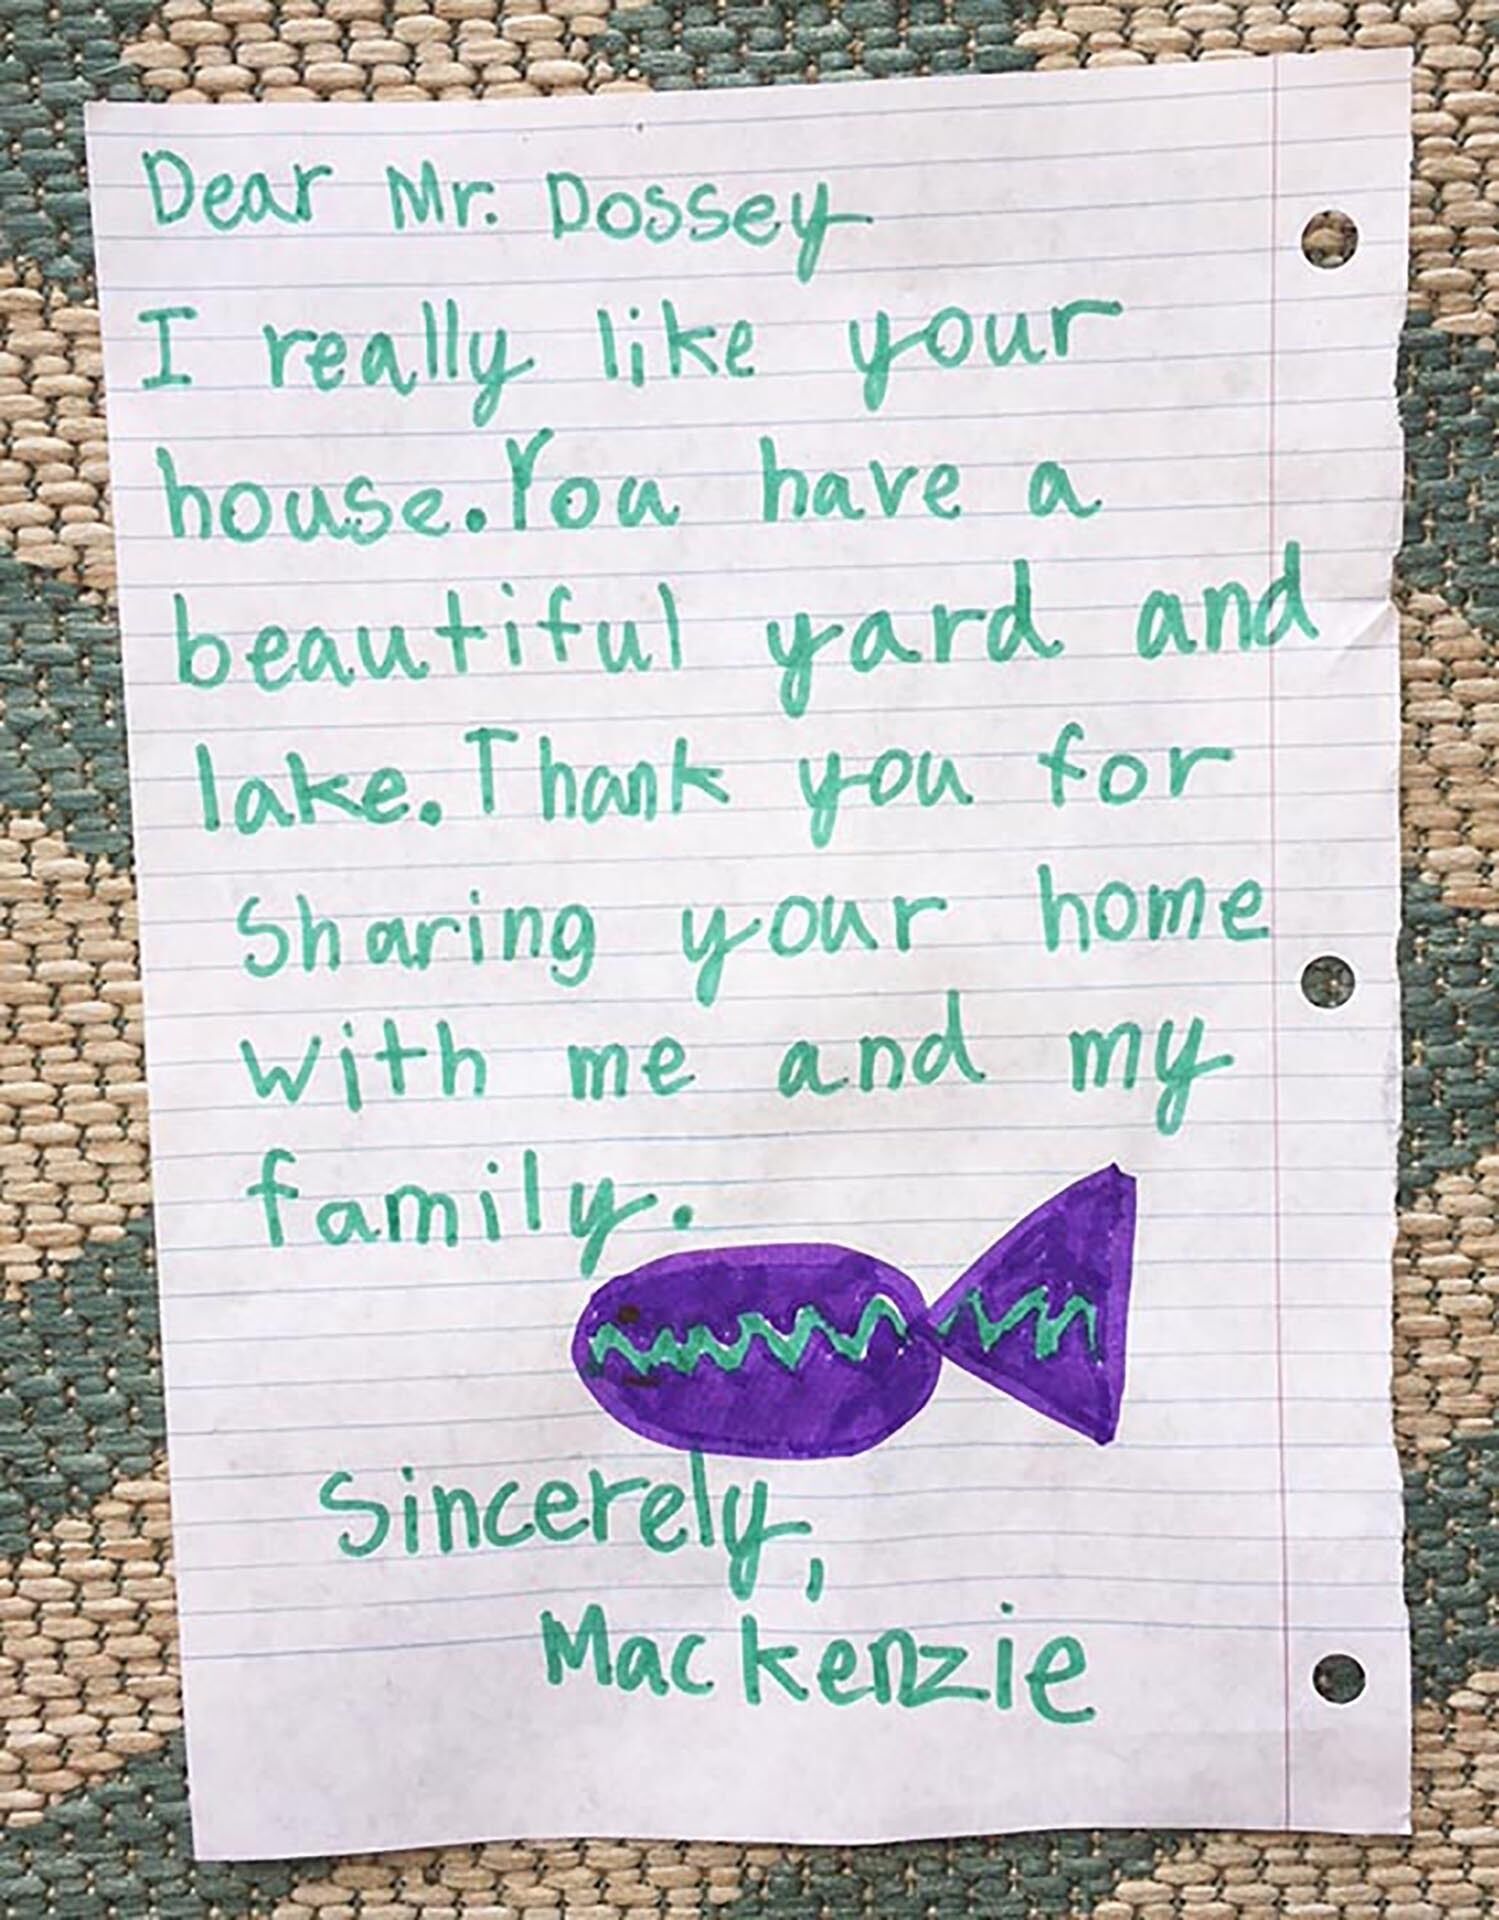 Dear Mr. Dossey
I really like your
house. You have a
beautiful yard and
lake. Thank you for
Sharing your home
with me and my
family.
Sincerely,
Mackenzie